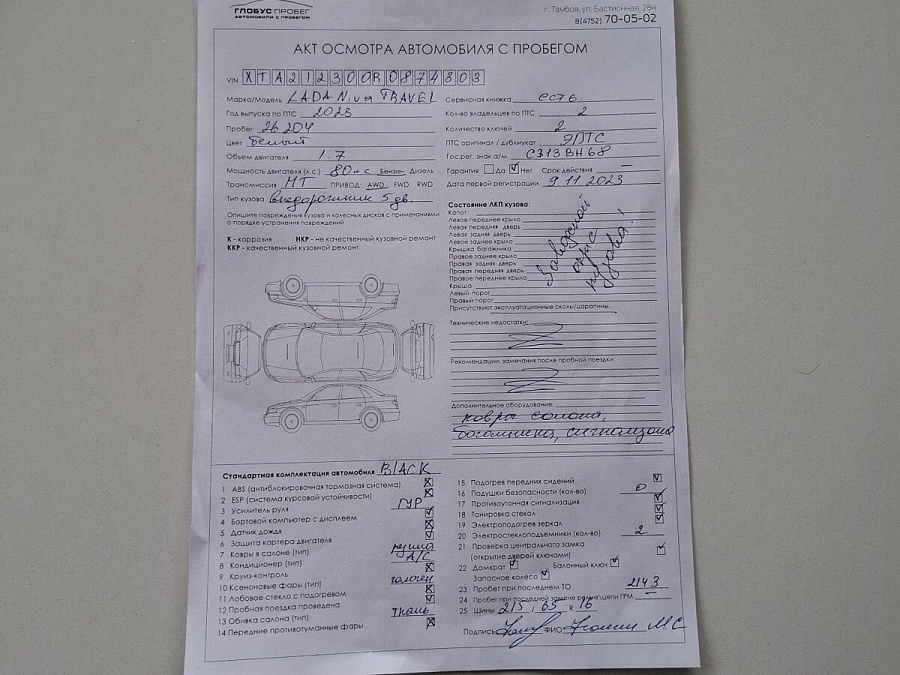 ГЛОБУС ПРОБЕГ
АВТОМОБИЛИ С ПРОБЕГОМ
г. Тамбов, ул. Бастионная, 28н
8(4752) 70-05-02
АКТ ОСМОТРА АВТОМОБИЛЯ С ПРОБЕГОМ
VIN XTA212300R0874803
Марка/Модель LADA Niva TRAVEL
Год выпуска по ПТС 2023
Пробег 26 204
Цвет белый
Объем двигателя 1.7
Мощность двигателя (л.с.) 80 лс Бензин- Дизель
Трансмиссия МТ ПРИВОД: AWD FWD RWD
Тип кузова внедорожник 5 дв.
Опишите повреждения кузова и колесных дисков с примечаниями
о порядке устранения повреждений
К - коррозия НКР - не качественный кузовной ремонт
ККР - качественный кузовной ремонт
Сервисная книжка есть
Кол-во владельцев по ПТС 2
Количество ключей 2
ПТС оригинал / дубликат ЭПТС
Гос.рег. знак а/м С313ВН68
Гарантия Да Нет Срок действия —
Дата первой регистрации 9.11.2023
Состояние ЛКП кузова:
Капот
Левое переднее крыло
Левая передняя дверь
Левая задняя дверь
Левое заднее крыло
Крышка багажника
Правое заднее крыло
Правая задняя дверь
Правая передняя дверь
Правое переднее крыло
Крыша
Левый порог
Правый порог
Заводской
окрас
кузова!
Присутствуют эксплуатационные сколы/царапины.
Технические недостатки:
Рекомендации, замечания после пробной поездки:
Дополнительное оборудование:
ковры салона,
багажника, сигнализация
Стандартная комплектация автомобиля BLACK
1 ABS (антиблокировочная тормозная система)
2 ESP (система курсовой устойчивости)
3 Усилитель руля ГУР
4 Бортовой компьютер с дисплеем
5 Датчик дождя
6 Защита картера двигателя
7 Ковры в салоне (тип) резина
8 Кондиционер (тип) A/C
9 Круиз-контроль
10 Ксеноновые фары (тип) галоген
11 Лобовое стекло с подогревом
12 Пробная поездка проведена
13 Обивка салона (тип) ткань
14 Передние противотуманные фары
15 Подогрев передних сидений
16 Подушки безопасности (кол-во) 0
17 Противоугонная сигнализация
18 Тонировка стекол
19 Электроподогрев зеркал
20 Электростеклоподъемники (кол-во) 2
21 Проверка центрального замка
(открытие дверей ключами)
22 Домкрат Балонный ключ
Запасное колесо
23 Пробег при последнем ТО 2143
24 Пробег при последней замене ремня/цепи ГРМ —
25 Шины 215 / 65 R 16
Подпись ФИО М.С